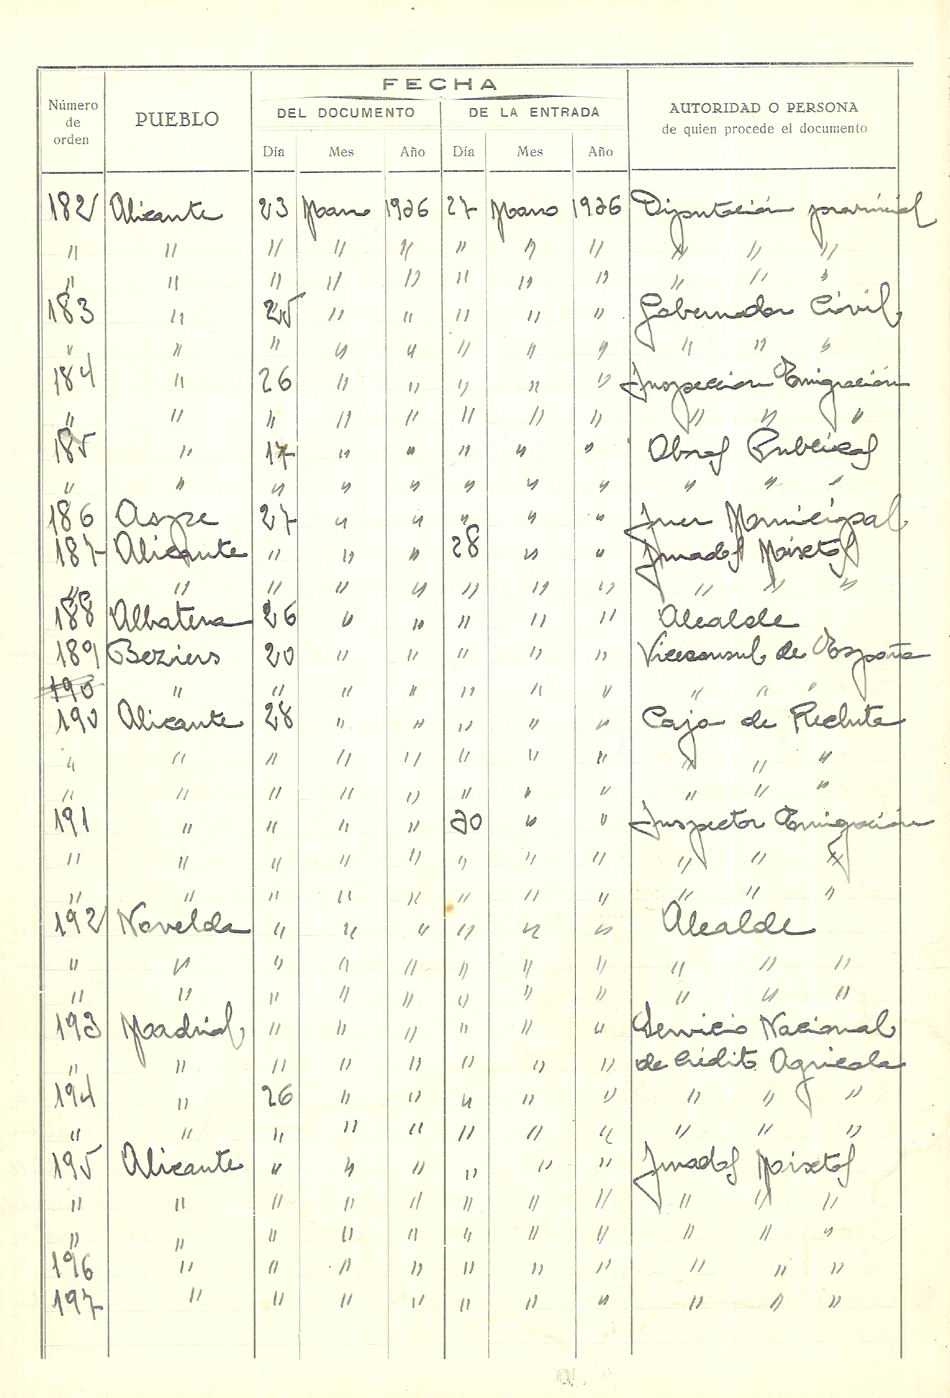 FECHA
Número de orden PUEBLO DEL DOCUMENTO DE LA ENTRADA AUTORIDAD O PERSONA
de quien procede el documento
Día Mes Año Día Mes Año
182 Alicante 23 Marzo 1926 27 Marzo 1926 Diputación provincial
" " " " " " " " " " "
" " " " " " " " " " "
183 " 25 " " " " " Gobernador Civil
" " " " " " " " " " "
184 " 26 " " " " " Inspección Emigración
" " " " " " " " " " "
185 " 17 " " " " " Obras Publicas
" " " " " " " " " " "
186 Aspe 27 " " " " " Juez Municipal
187 Alicante " " " 28 " " Jurados Mixtos
" " " " " " " " " " "
188 Albatera 26 " " " " " Alcalde
189 Beziers 20 " " " " " Viceconsul de España
190 " " " " " " " " " "
190 Alicante 28 " " " " " Caja de Recluta
" " " " " " " " " " "
" " " " " " " " " " "
191 " " " " 30 " " Inspector Emigración
" " " " " " " " " " "
" " " " " " " " " " "
192 Novelda " " " " " " Alcalde
" " " " " " " " " " "
" " " " " " " " " " "
193 Madrid " " " " " " Servicio Nacional
" " " " " " " " de Crédito Agricola
194 " 26 " " " " " " " "
" " " " " " " " " " "
195 Alicante " " " " " " Jurados Mixtos
" " " " " " " " " " "
" " " " " " " " " " "
196 " " " " " " " " " "
197 " " " " " " " " " "